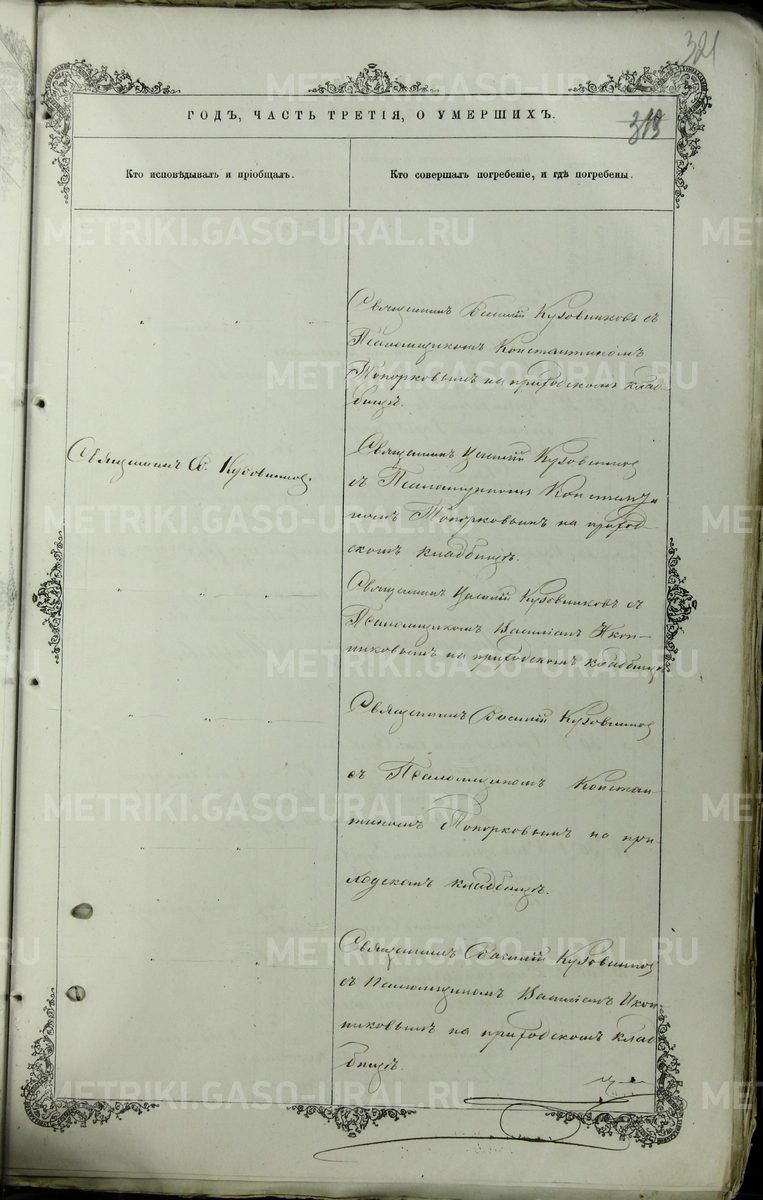 321
ГОДЪ, ЧАСТЬ ТРЕТІЯ, О УМЕРШИХЪ.
313
Кто исповѣдывалъ и пріобщалъ.
Кто совершалъ погребеніе, и гдѣ погребены.
Священникъ Василій Кузовниковъ съ
Псаломщикомъ Константиномъ
Топорковымъ на приходскомъ клад-
бищѣ.
Священникъ В. Кузовниковъ.
Священникъ Василій Кузовниковъ
съ Псаломщикомъ Константи
номъ Топорковымъ на приход-
скомъ кладбищѣ.
Священникъ Василій Кузовниковъ съ
Псаломщикомъ Икон-
никовымъ на приходскомъ кладбищѣ
Священникъ Василій Кузовниковъ
съ Псаломщикомъ Констан-
тиномъ Топорковымъ на при-
ходскомъ кладбищѣ.
Священникъ Василій Кузовниковъ
съ Псаломщикомъ Икон
никовымъ на приходскомъ клад
бищѣ.
METRIKI.GASO-URAL.RU